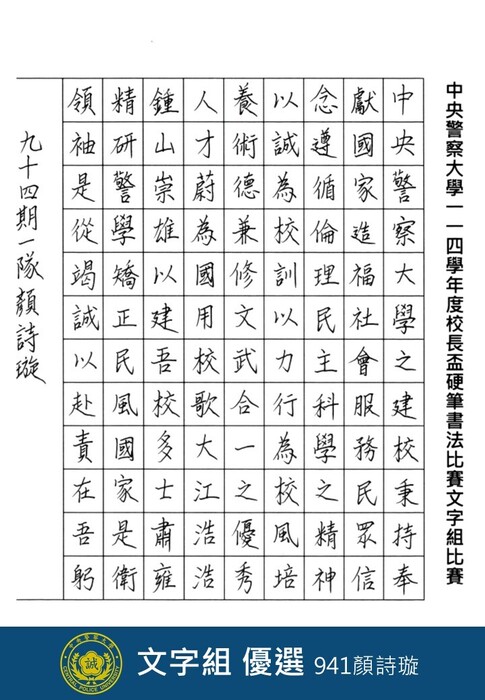 中央警察大學一一四學年度校長盃硬筆書法比賽文字組比賽
中央警察大學之建校秉持奉
獻國家造福社會服務民眾信
念遵循倫理民主科學之精神
以誠為校訓以力行為校風培
養術德兼修文武合一之優秀
人才蔚為國用校歌大江浩浩
鍾山崇雄以建吾校多士肅雍
精研警學矯正民風國家是衛
領袖是從竭誠以赴責在吾躬
九十四期一隊顏詩璇
誠
CENTRAL POLICE UNIVERSITY
文字組 優選 941顏詩璇